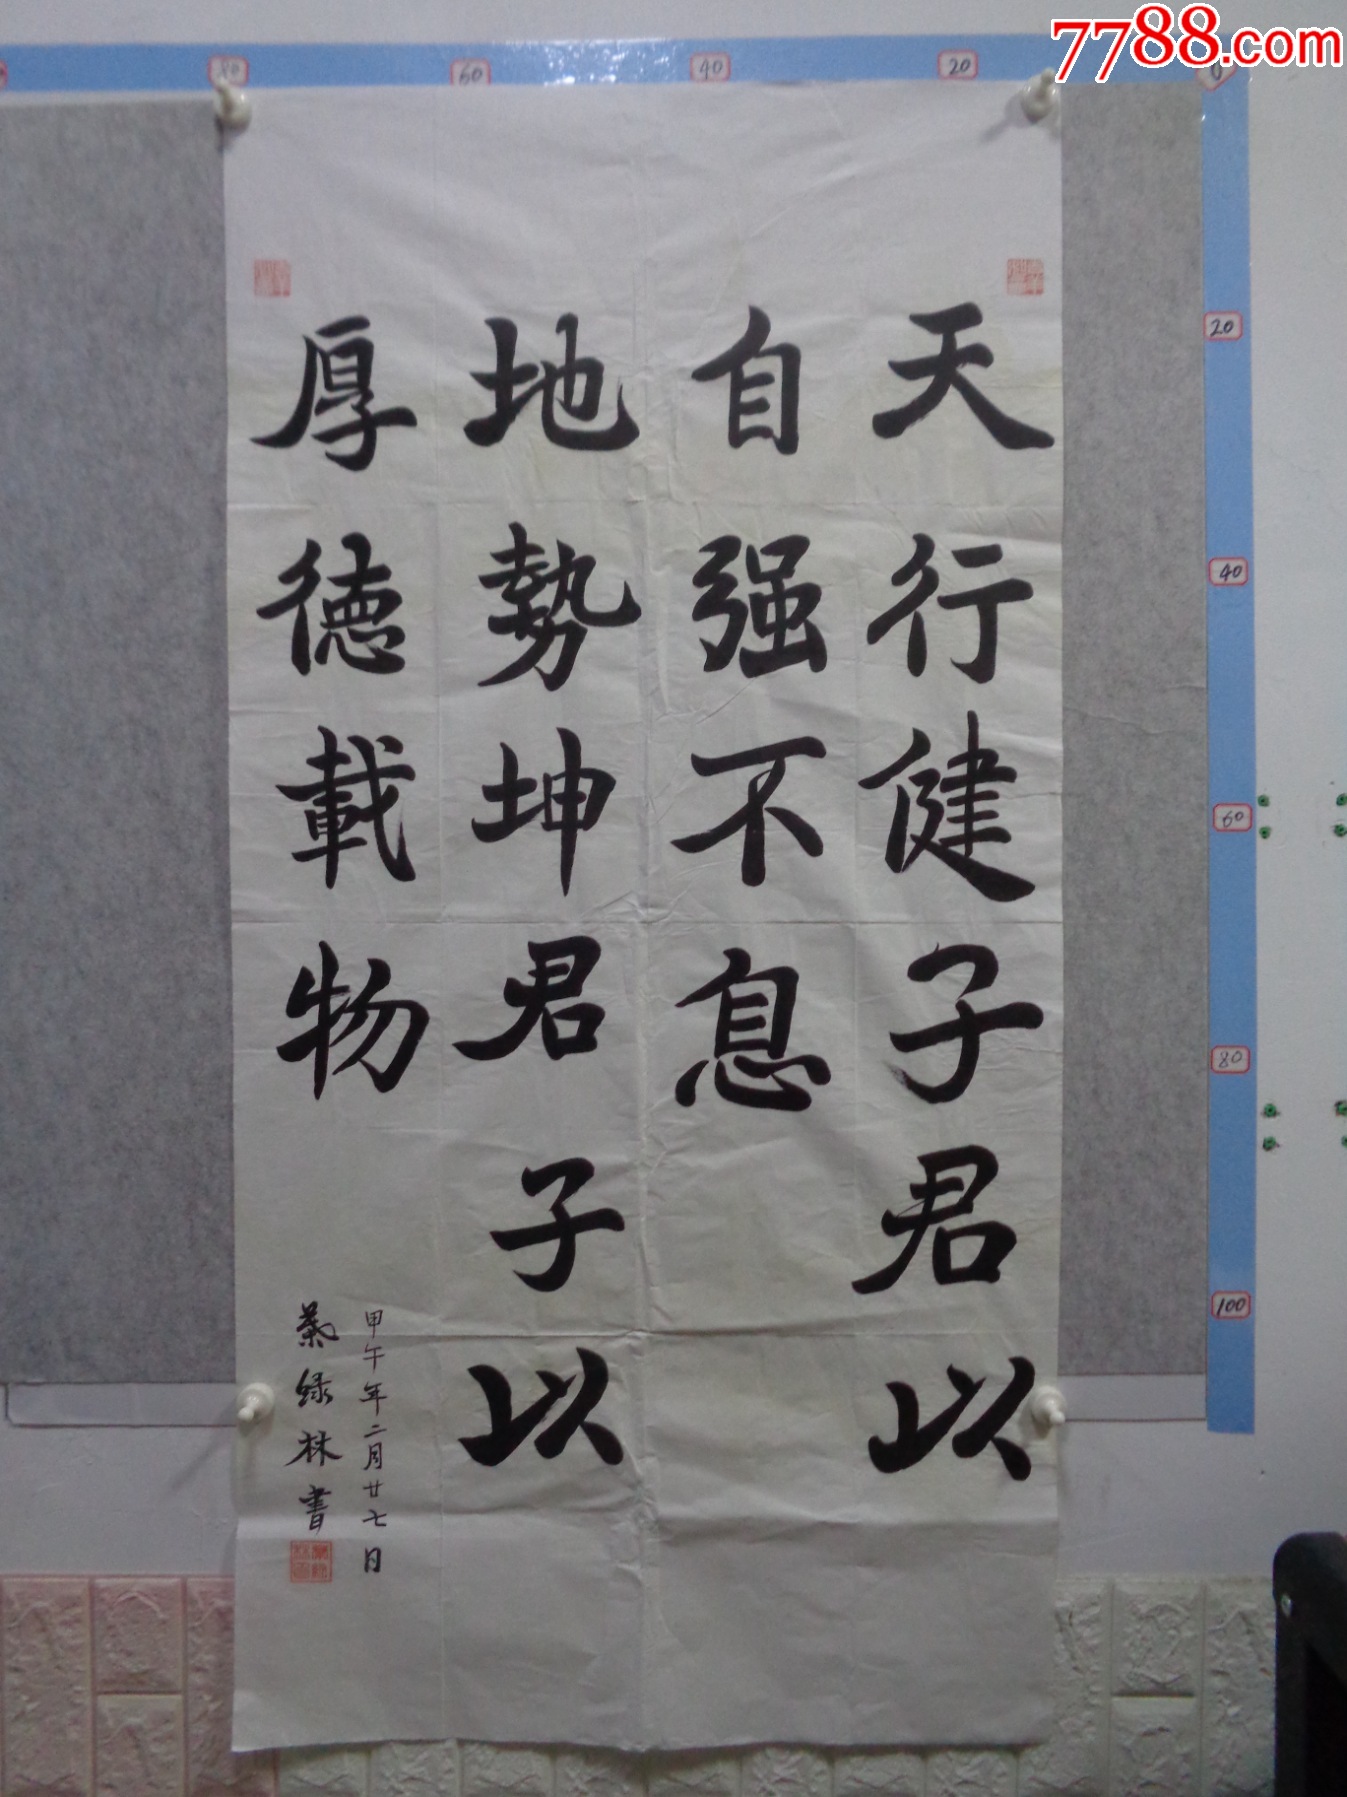 天行健子君以
自强不息
地勢坤君子以
厚德載物
甲午年二月廿七日
葉绿林書
7788.com
80
60
40
20
0
20
40
60
80
100